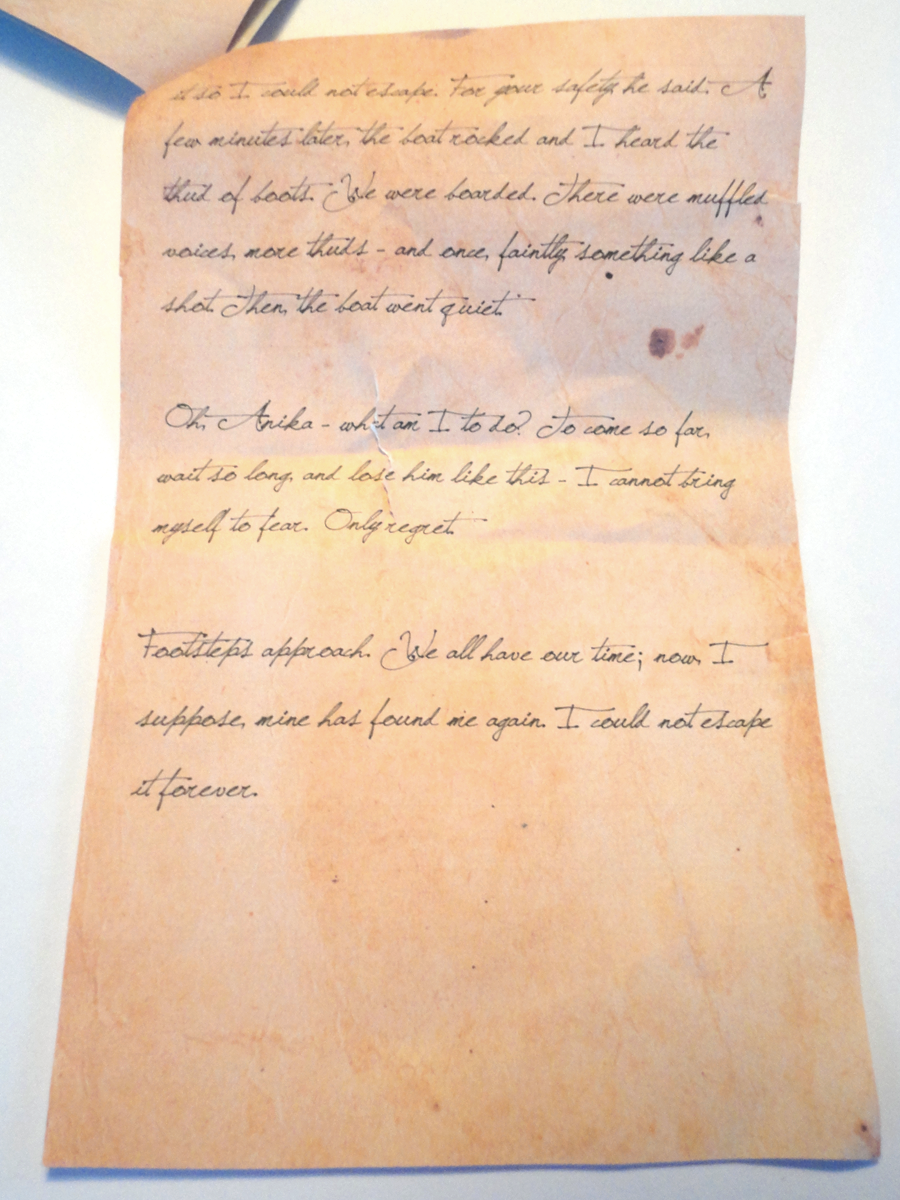 it so I could not escape. For your safety, he said. A
few minutes later, the boat rocked and I heard the
thud of boots. We were boarded. There were muffled
voices, more thuds - and once, faintly, something like a
shot. Then, the boat went quiet.
Oh, Anika - what am I to do? To come so far,
wait so long, and lose him like this - I cannot bring
myself to fear. Only regret.
Footsteps approach. We all have our time; now, I
suppose, mine has found me again. I could not escape
it forever.